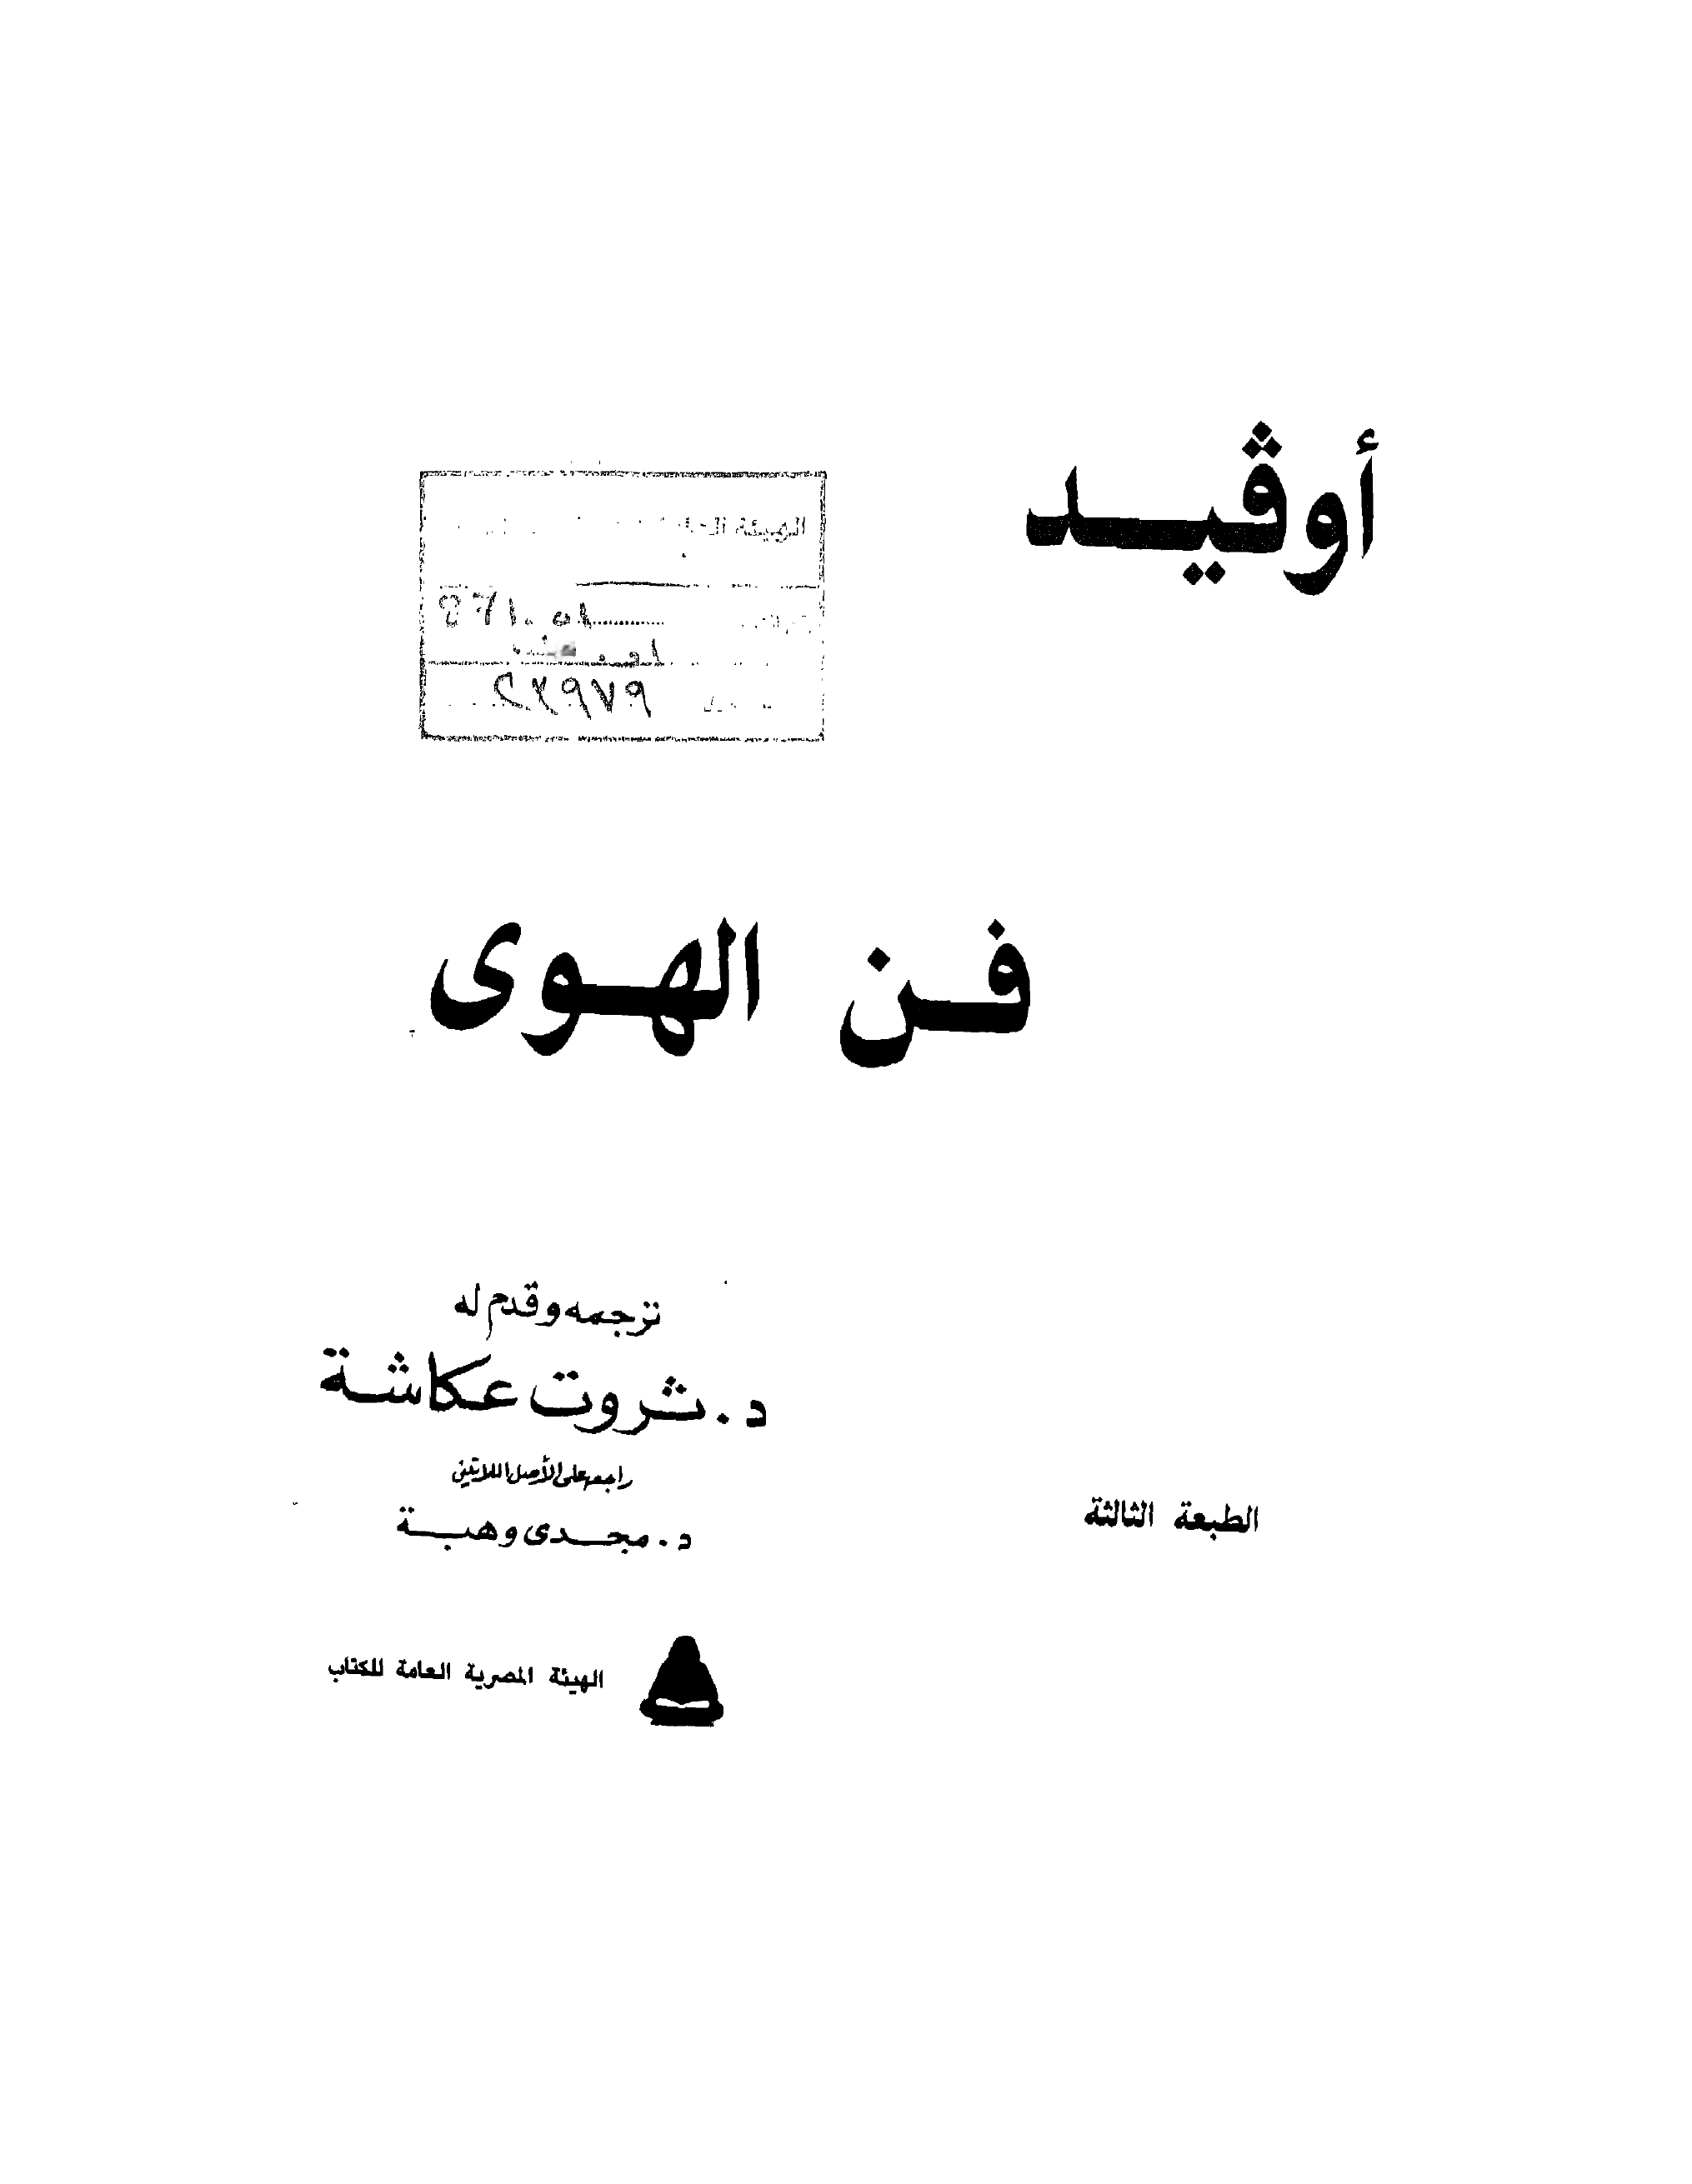 أوڤيد
الهيئة
871.01
٢٣٩٧٩
فن الهوى
ترجمه وقدم له
د. ثروت عكاشة
راجعه على الأصل اللاتيني
د. مجدى وهبة
الطبعة الثالثة
الهيئة المصرية العامة للكتاب